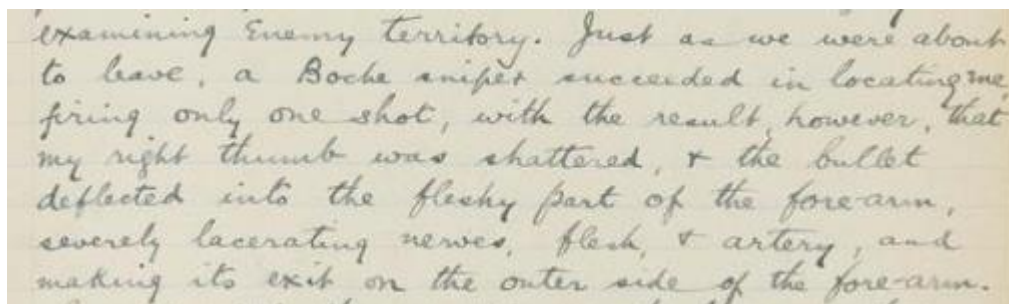 examining Enemy territory. Just as we were about
to leave, a Boche sniper succeeded in locating me,
firing only one shot, with the result, however, that
my right thumb was shattered, & the bullet
deflected into the fleshy part of the forearm,
severely lacerating nerves, flesh, & artery, and
making its exit on the outer side of the fore-arm.